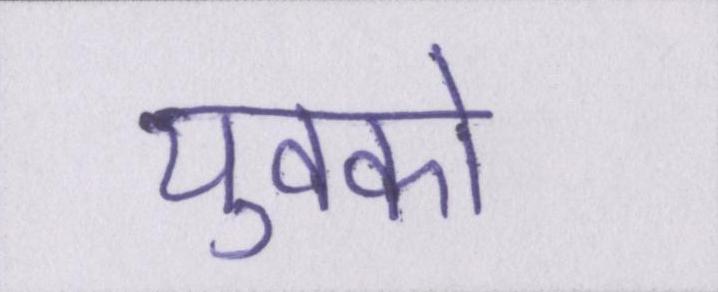 युवको